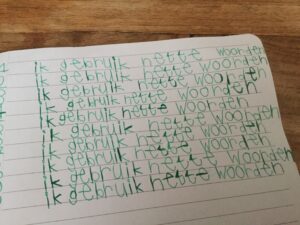 Ik gebruik nette woorden
Ik gebruik nette woorden
Ik gebruik nette woorden
Ik gebruik nette woorden
Ik gebruik nette woorden
Ik gebruik nette woorden
Ik gebruik nette woorden
Ik gebruik nette woorden
Ik gebruik nette woorden
Ik gebruik nette woorden